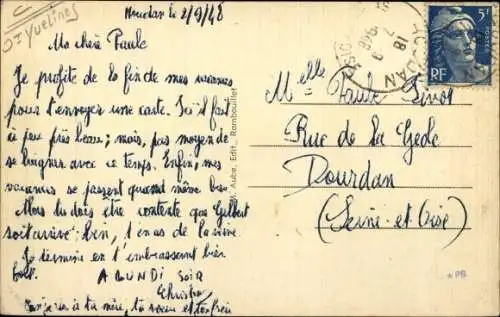 Dt Yvelines
Houdan le 2/9/48
Ma chère Paule
Je profite de la fin de mes vacances
pour t'envoyer une carte. Ici il fait
à peu près beau; mais, pas moyen de
se baigner avec ce temps. Enfin, mes
vacances se passent quand même bien
Mais tu dois être contente que Gilbert
soit arrivé: ben, t'en as de la veine.
Je termine en t'embrassant bien
fort. A LUNDI soir
Christian
Bonjour à ta mère, ta soeur et ton frère
Aube, Edit., Rambouillet
HOUDAN
18
2 9
5F
RF
Melle Paule
Rue de la Geôle
Dourdan
(Seine-et-Oise)
*PB